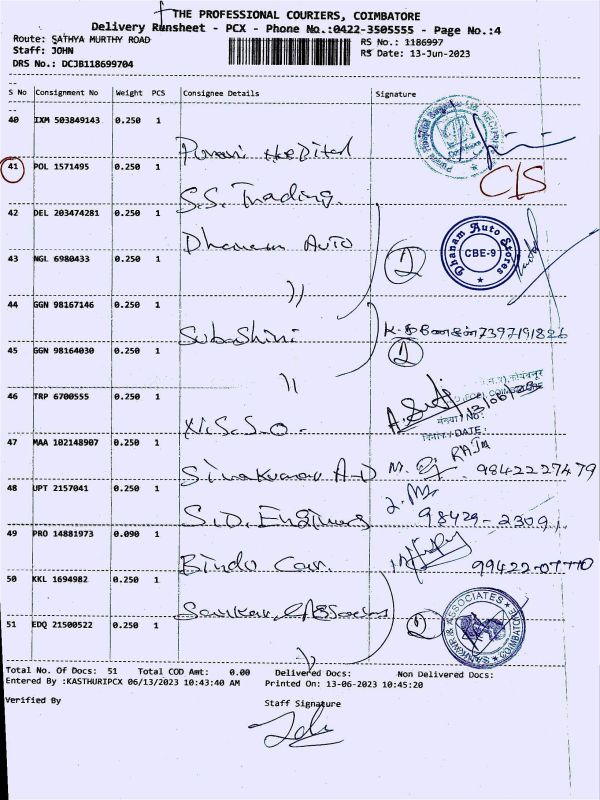 THE PROFESSIONAL COURIERS, COIMBATORE
Delivery Runsheet - PCX - Phone No.:0422-3505555 - Page No.:4
Route: SATHYA MURTHY ROAD RS No.: 1186997
Staff: JOHN RS Date: 13-Jun-2023
DRS No.: DCJB118699704
S No Consignment No Weight PCS Consignee Details Signature
40 IXM 503849143 0.250 1
Hospital
41 POL 1571495 0.250 1 C/S
S.S. Trading.
42 DEL 203474281 0.250 1
Dhanam Auto
Dhanam Auto Stores
CBE-9
43 NGL 6980433 0.250 1 2
"
44 GGN 98167146 0.250 1
Subashini 7397191826
45 GGN 98164030 0.250 1 2
"
46 TRP 6700555 0.250 1
13/06/23
N.S.S.O.
No:
दिनांक / DATE:
47 MAA 102148907 0.250 1
Sivakumar A.D 9842227479
48 UPT 2157041 0.250 1
S.D. Engineers
49 PRO 14881973 0.090 1
Bindu Can.
50 KKL 1694982 0.250 1
Sankar & Associates
SANKAR & ASSOCIATES COIMBATORE
51 EDQ 21500522 0.250 1 2
"
Total No. Of Docs: 51 Total COD Amt: 0.00 Delivered Docs: Non Delivered Docs:
Entered By :KASTHURIPCX 06/13/2023 10:43:40 AM Printed On: 13-06-2023 10:45:20
Verified By Staff Signature